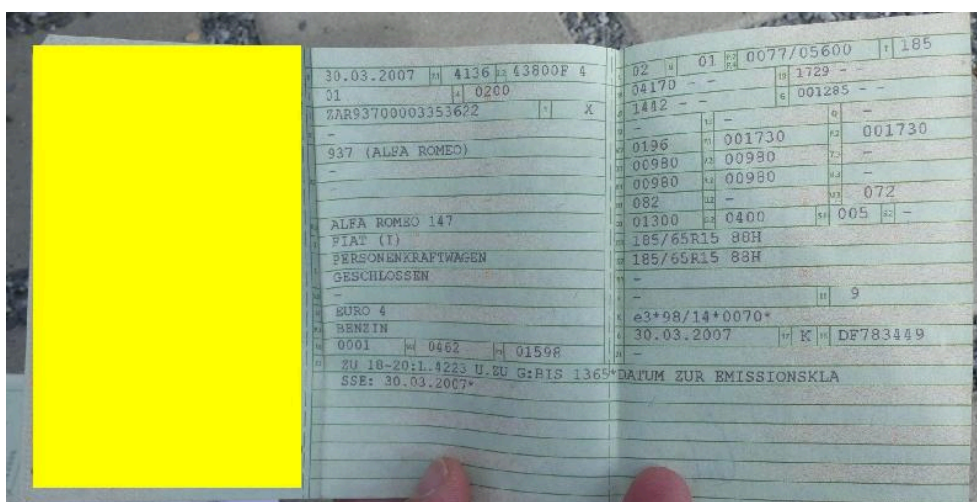 30.03.2007 4136 43800F 4
01 0200
ZAR93700003353622 X
-
937 (ALFA ROMEO)
-
-
ALFA ROMEO 147
FIAT (I)
PERSONENKRAFTWAGEN
GESCHLOSSEN
-
EURO 4
BENZIN
0001 0462 01598
ZU 18-20:L.4223 U.ZU G:BIS 1365*DATUM ZUR EMISSIONSKLA
SSE: 30.03.2007*
02 01 0077/05600 185
04170 - - 1729 - -
1442 - - 001285 - -
- - -
0196 001730 001730
00980 00980 -
00980 00980 -
082 - 072
01300 0400 005 -
185/65R15 88H
185/65R15 88H
-
- 9
e3*98/14*0070*
30.03.2007 K DF783449
-